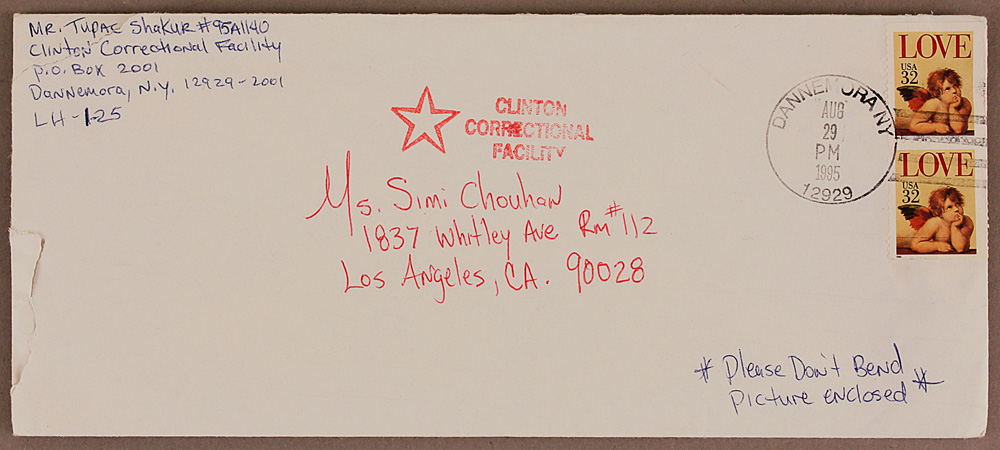 Mr. Tupac Shakur #95A1140
Clinton Correctional Facility
P.O. Box 2001
Dannemora, N.Y. 12929-2001
LH-125
CLINTON
CORRECTIONAL
FACILITY
DANNEMORA NY
AUG
29
PM
1995
12929
LOVE
USA
32
LOVE
USA
32
Ms. Simi Chouhan
1837 Whitley Ave Rm #112
Los Angeles, CA. 90028
# Please Don't Bend
Picture enclosed #